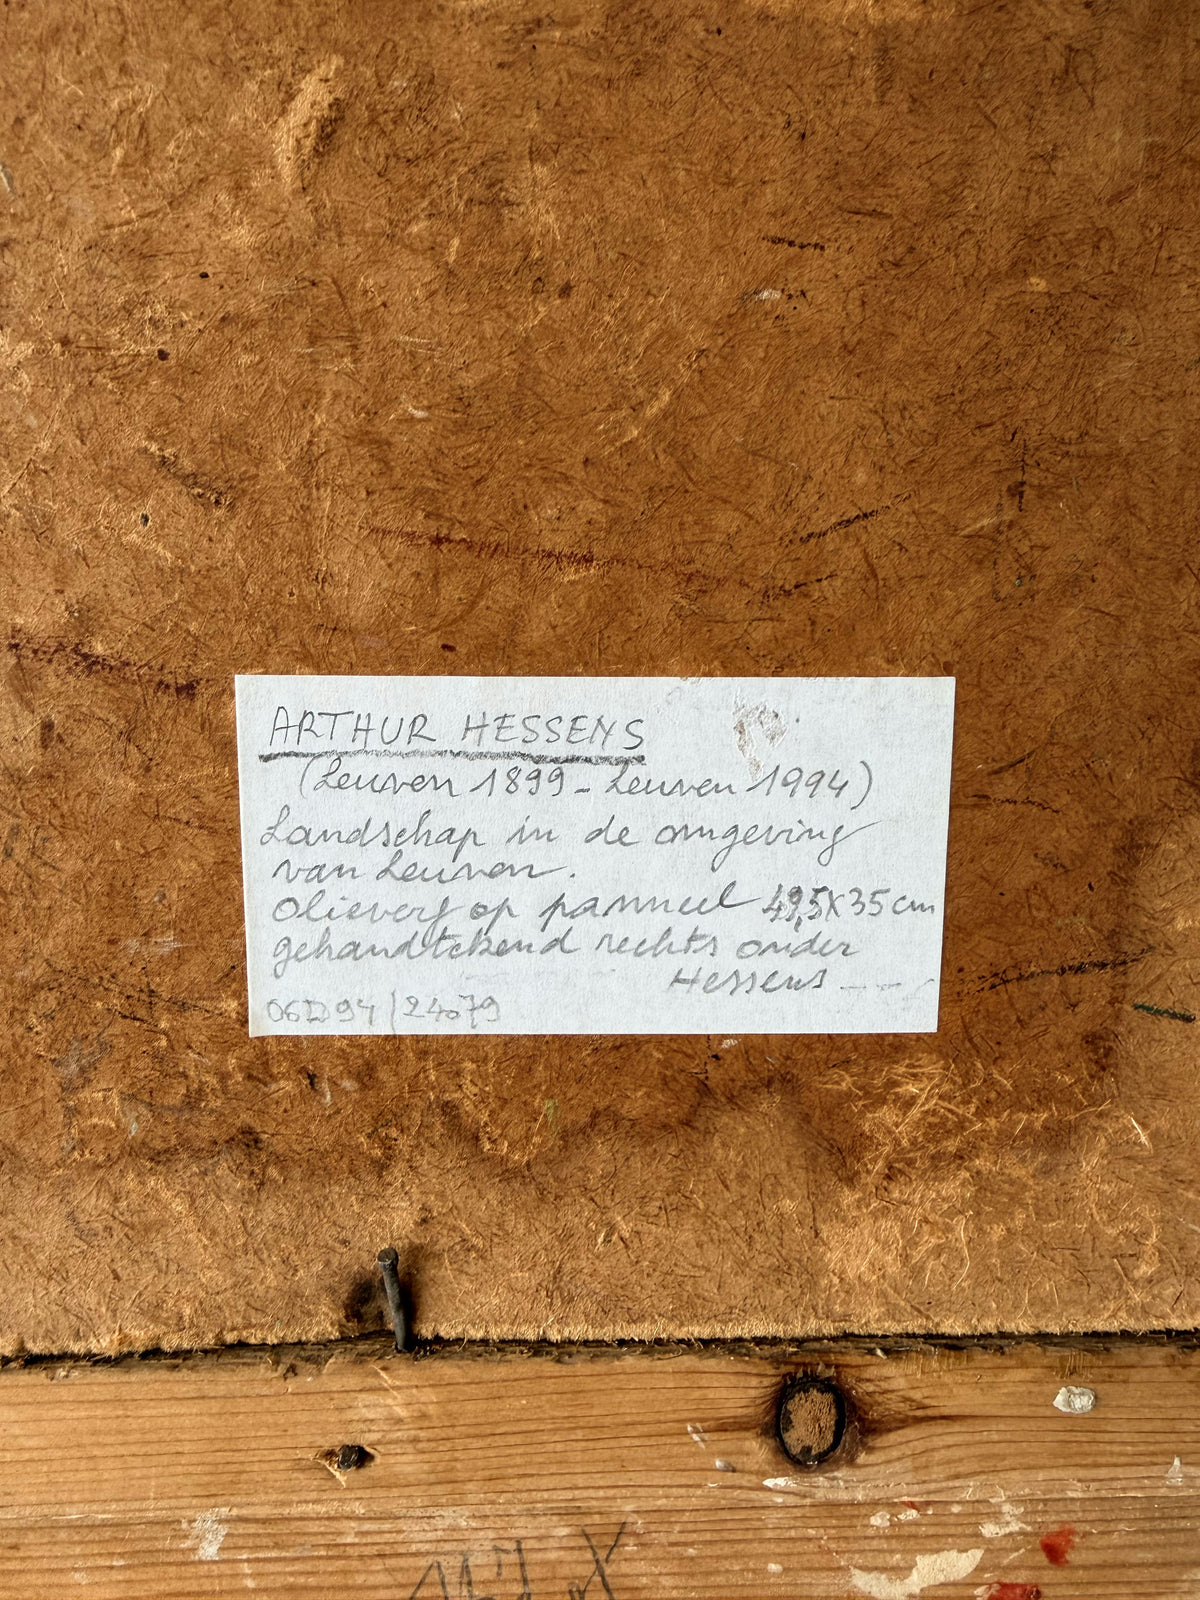 ARTHUR HESSENS
(Leuven 1899 - Leuven 1994)
Landschap in de omgeving
van Leuven.
Olieverf op panneel 49,5X35cm
gehandtekend rechts onder
Hessens